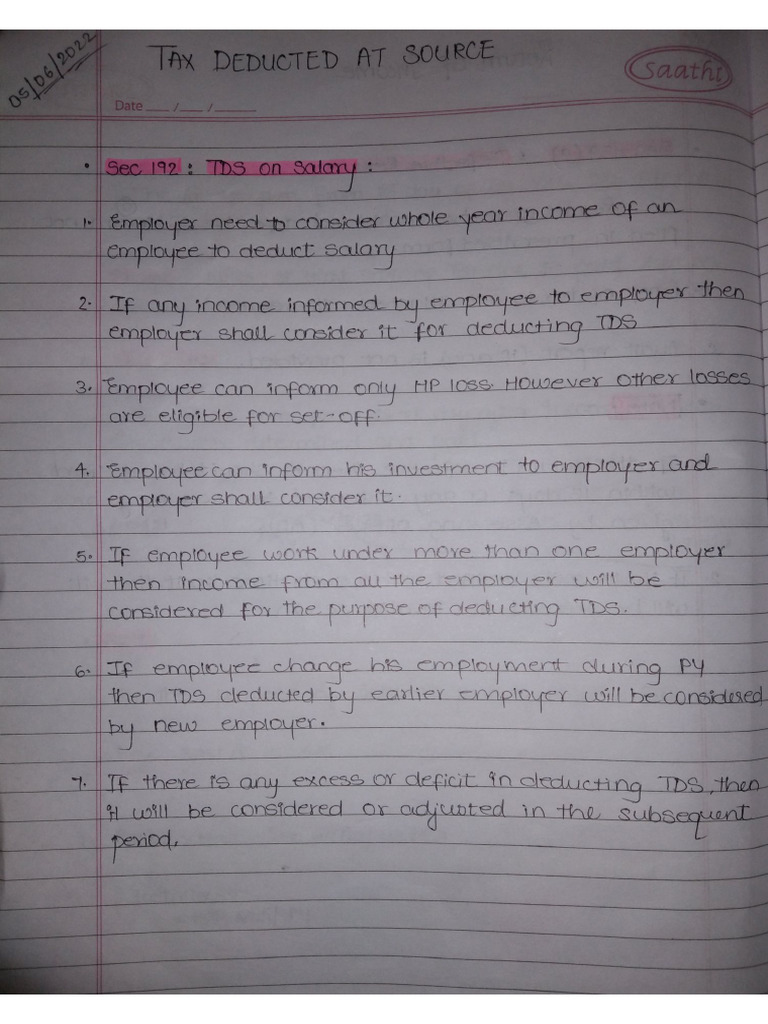 05/06/2022
TAX DEDUCTED AT SOURCE
Saathi
Date ___/___/_____
• Sec 192 : TDS on Salary :
1. Employer need to consider whole year income of an
employee to deduct salary
2. If any income informed by employee to employer then
employer shall consider it for deducting TDS
3. Employee can inform only HP loss. However other losses
are eligible for set-off.
4. Employee can inform his investment to employer and
employer shall consider it.
5. If employee work under more than one employer
then income from all the employer will be
considered for the purpose of deducting TDS.
6. If employee change his employment during PY
then TDS deducted by earlier employer will be considered
by new employer.
7. If there is any excess or deficit in deducting TDS, then
it will be considered or adjusted in the subsequent
period.